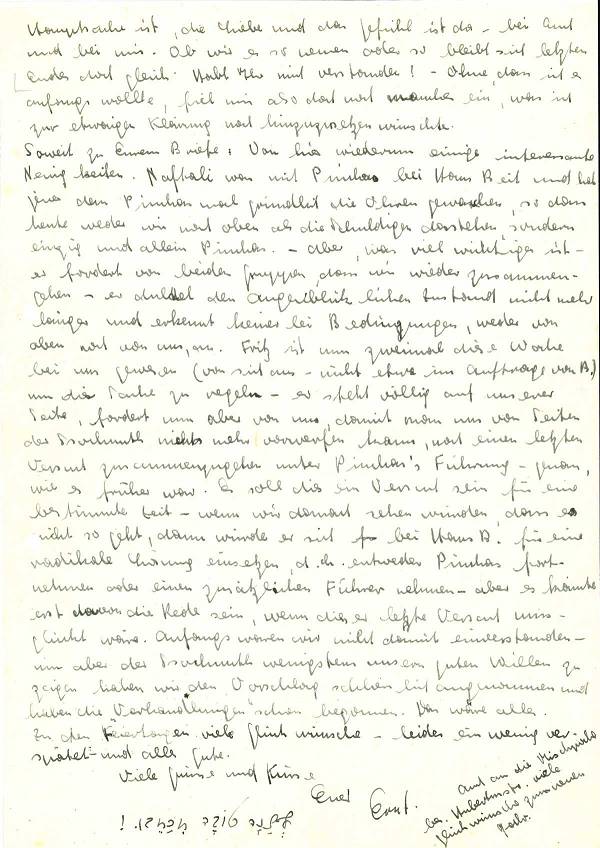 Hauptsache ist, die Liebe und das Gefühl ist da – bei Euch
und bei mir. Ob wir es so nennen oder so bleibt sich letzten
Endes doch gleich. Habt Ihr mich verstanden! – Ohne, dass ich es
anfangs wollte, fiel mir also doch noch manches ein, was ich
zur etwaigen Klärung noch hinzuzusetzen wünschte.
Soweit zu Eurem Briefe: Von hier wiederum einige interessante
Neuigkeiten. Naftali war mit Pinchas bei Hans Beit und hat
jener dem Pinchas mal gründlich die Ohren gewaschen, so dass
heute weder wir noch oben als die Schuldigen dastehen sondern
einzig und allein Pinchas. – Aber, was viel wichtiger ist –
er fordert von beiden Gruppen, dass wir wieder zusammen-
gehen – er duldet den augenblicklichen Zustand nicht mehr
länger und erkennt keinerlei Bedingungen, weder von
oben noch von uns, an. Fritz ist nun zweimal diese Woche
bei uns gewesen (von sich aus – nicht etwa im Auftrage von B.)
um die Sache zu regeln – er steht völlig auf unserer
Seite, fordert nun aber von uns, damit man uns von Seiten
der nichts mehr vorwerfen kann, noch einen letzten
Versuch zusammenzugehen unter Pinchas's Führung – genau,
wie es früher war. Es soll dies ein Versuch sein für eine
bestimmte Zeit – wenn wir danach sehen würden, dass es
nicht so geht, dann würde er sich bei Hans B. für eine
radikale Lösung einsetzen, d.h. entweder Pinchas fort-
nehmen oder einen zusätzlichen Führer nehmen – aber es könnte
erst davon die Rede sein, wenn dieser letzte Versuch miss-
glückt wäre. Anfangs waren wir nicht damit einverstanden –
um aber der wenigstens unsern guten Willen zu
zeigen haben wir den Vorschlag schliesslich angenommen und
haben die "Verhandlungen" schon begonnen. Das wäre alles.
Zu den Feiertagen viele Glückwünsche – leider ein wenig ver-
spätet – und alles Gute.
Viele Grüsse und Küsse
Euer Ernst.
Auch an die Mischpoche
viele
Glückwünsche zum neuen
Jahr.